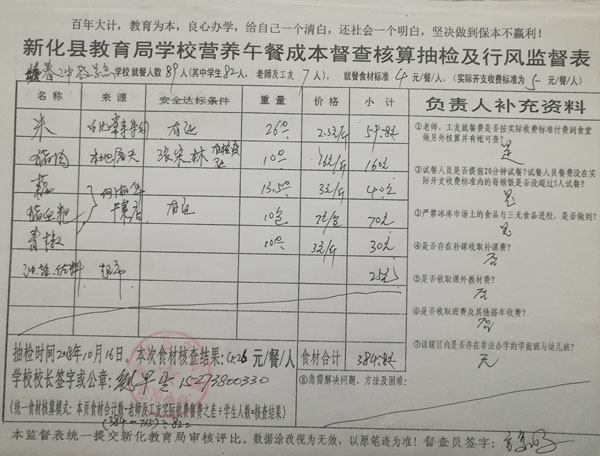 百年大计，教育为本，良心办学，给自己一个清白，还社会一个明白，坚决做到保本不赢利！
新化县教育局学校营养午餐成本督查核算抽检及行风监督表
学校就餐人数89人(其中学生82人，老师及工友7人)，就餐食材标准4元/餐/人，(实际开支收费标准为5元/餐/人)
名称 来源 安全达标条件 重量 价格 小计 负责人补充资料
米 有证 26 2.3元/斤 59.8元
猪肉 本地屠夫 10 16元/斤 160元
13.5 3元/斤 40元
猪血粑 有证 10包 7元/包 70元
青椒 10 3元/斤 30元
25元
①老师、工友就餐费是否按实际收费标准付费到食堂做另外核算并有帐可查？
是
②试餐人员是否提前20分钟试餐？试餐人员餐费没在实际开支收费标准内的每顿饭是否没超过5人试餐？
是
③严禁冰冻市场上的食品与三无食品进校，是否做到？
是
④是否存在补课收取补课费？
否
⑤是否收取课外教材费？
否
⑥是否收取班费及其他搭车收费？
否
⑦该辖区内是否存在非法办学的学前班与幼儿班？
无
抽检时间2018年10月16日．本次食材核查结果：4.26元/餐/人 食材合计 384.8元
学校校长签字或公章： 15273800330
⑧急需解决问题、方法及困难：
(统一食材核算模式：本页食材合计数-老师及工友实际缴费餐费之差÷学生人数=核查结果)
本监督表统一提交新化教育局审核评比。数据涂改视为无效，以原笔迹为准！督查员签字：